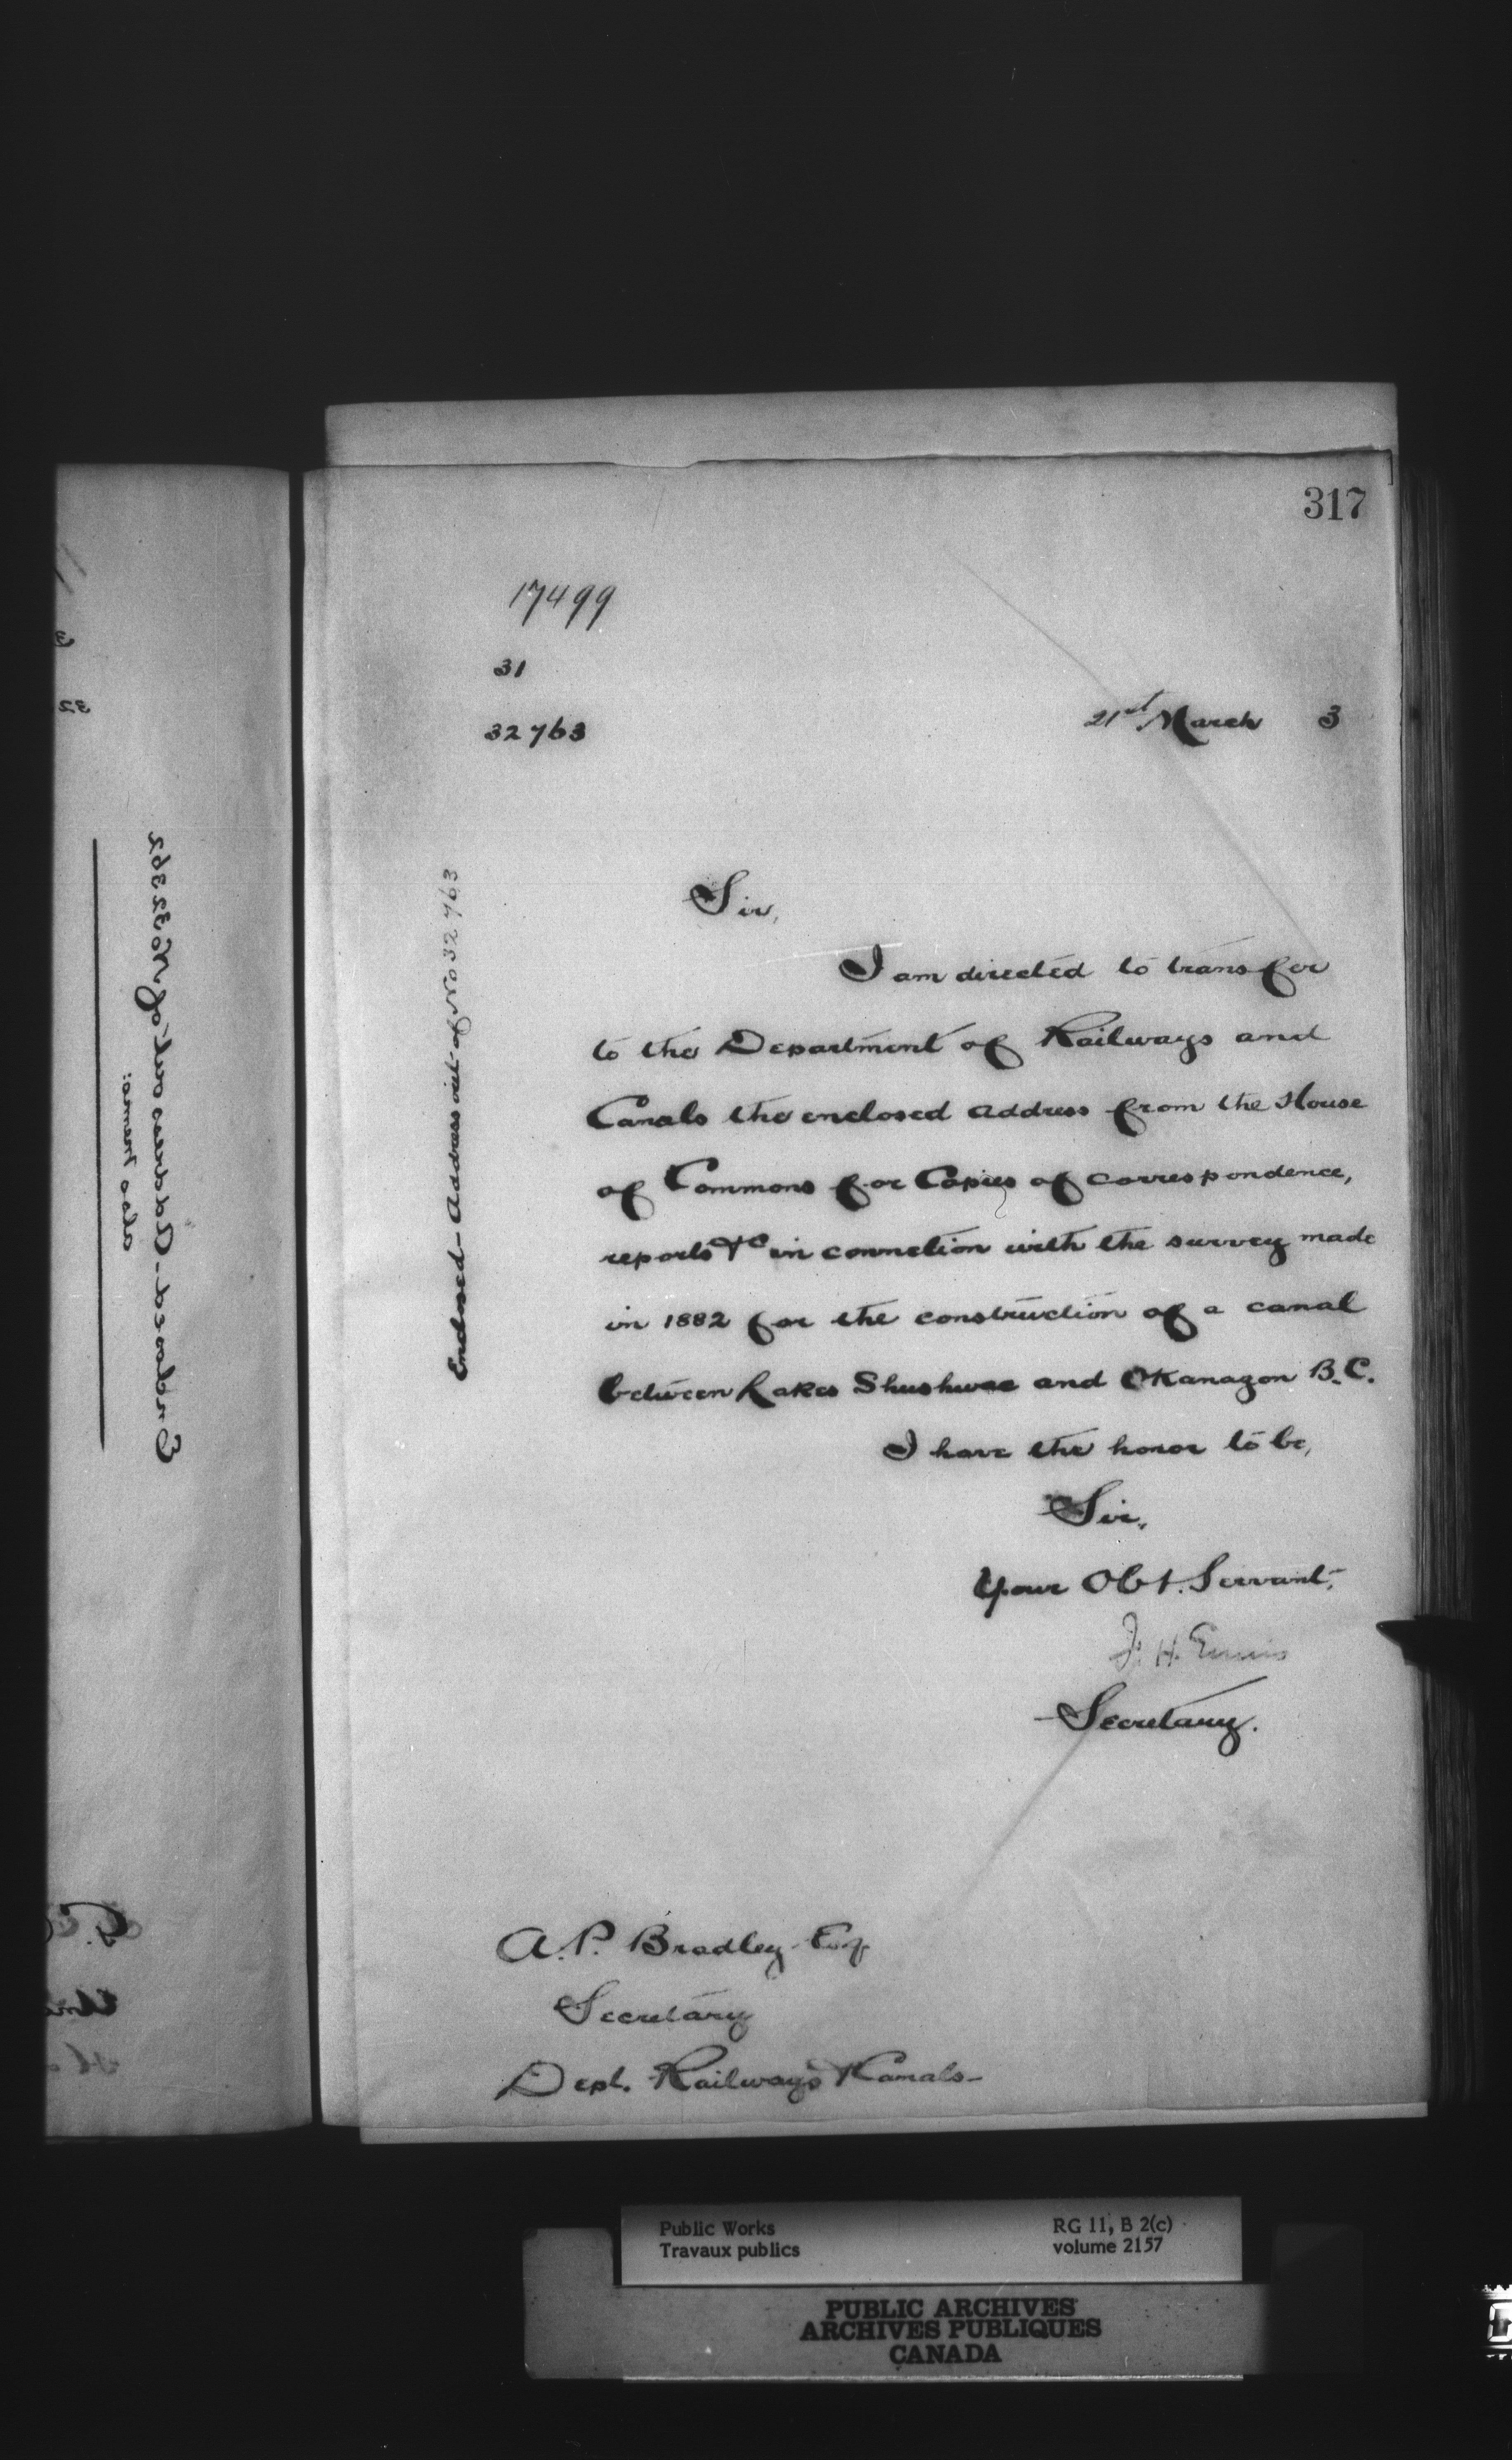 317
17499
31
32763
21st March 3
Enclosed - Address out of No 32763
Sir,
I am directed to transfer
to the Department of Railways and
Canals the enclosed address from the House
of Commons for Copies of correspondence,
reports &c in connection with the survey made
in 1882 for the construction of a canal
between Lakes Shushwae and Okanagon B.C.
I have the honor to be,
Sir,
Your Obt. Servant,
F. H. Ennis
Secretary.
A. P. Bradley Esq
Secretary
Dept. Railways & Canals
Enclosed - Address out of No 32362
also memo:
Public Works
Travaux publics
RG 11, B 2(c)
volume 2157
PUBLIC ARCHIVES
ARCHIVES PUBLIQUES
CANADA